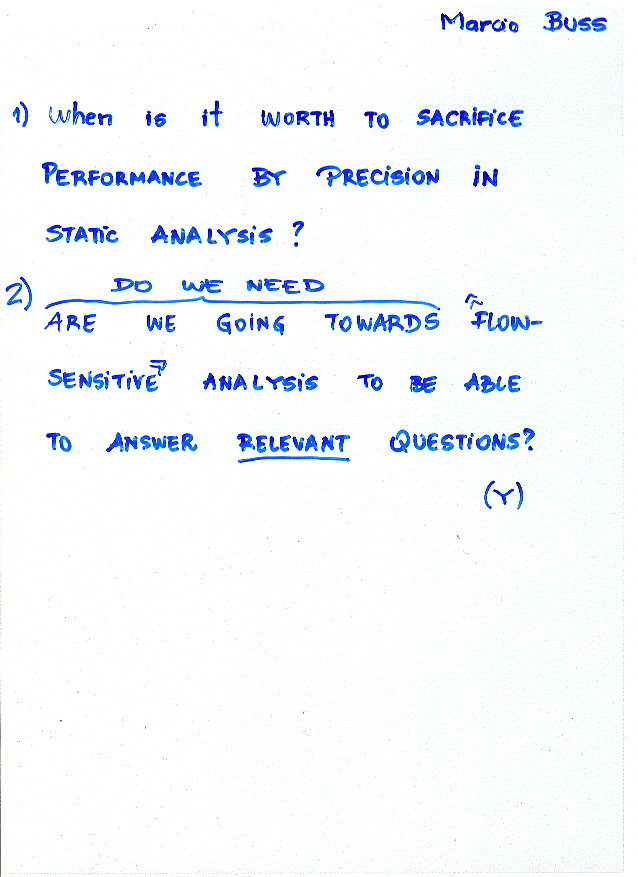 Marcio Buss
1) When is it WORTH TO SACRIFICE
PERFORMANCE BY PRECISION IN
STATIC ANALYSIS?
DO WE NEED
2) ARE WE GOING TOWARDS "FLOW-
SENSITIVE" ANALYSIS TO BE ABLE
TO ANSWER RELEVANT QUESTIONS?
(Y)